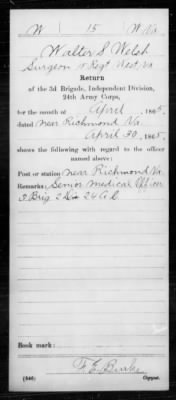 W 15 W.Va
Walter S Welsh
Surgeon 15 Regt West Va
Return
of the 3d Brigade, Independent Division,
24th Army Corps,
for the month of April, 1865,
dated near Richmond Va.
April 30, 1865
shows the following with regard to the officer
named above:
Post or station near Richmond Va
Remarks: Senior Medical Officer
3 Brig 2 Div 24 A.C.
Book mark:
F E Burke
(546) Copyist.